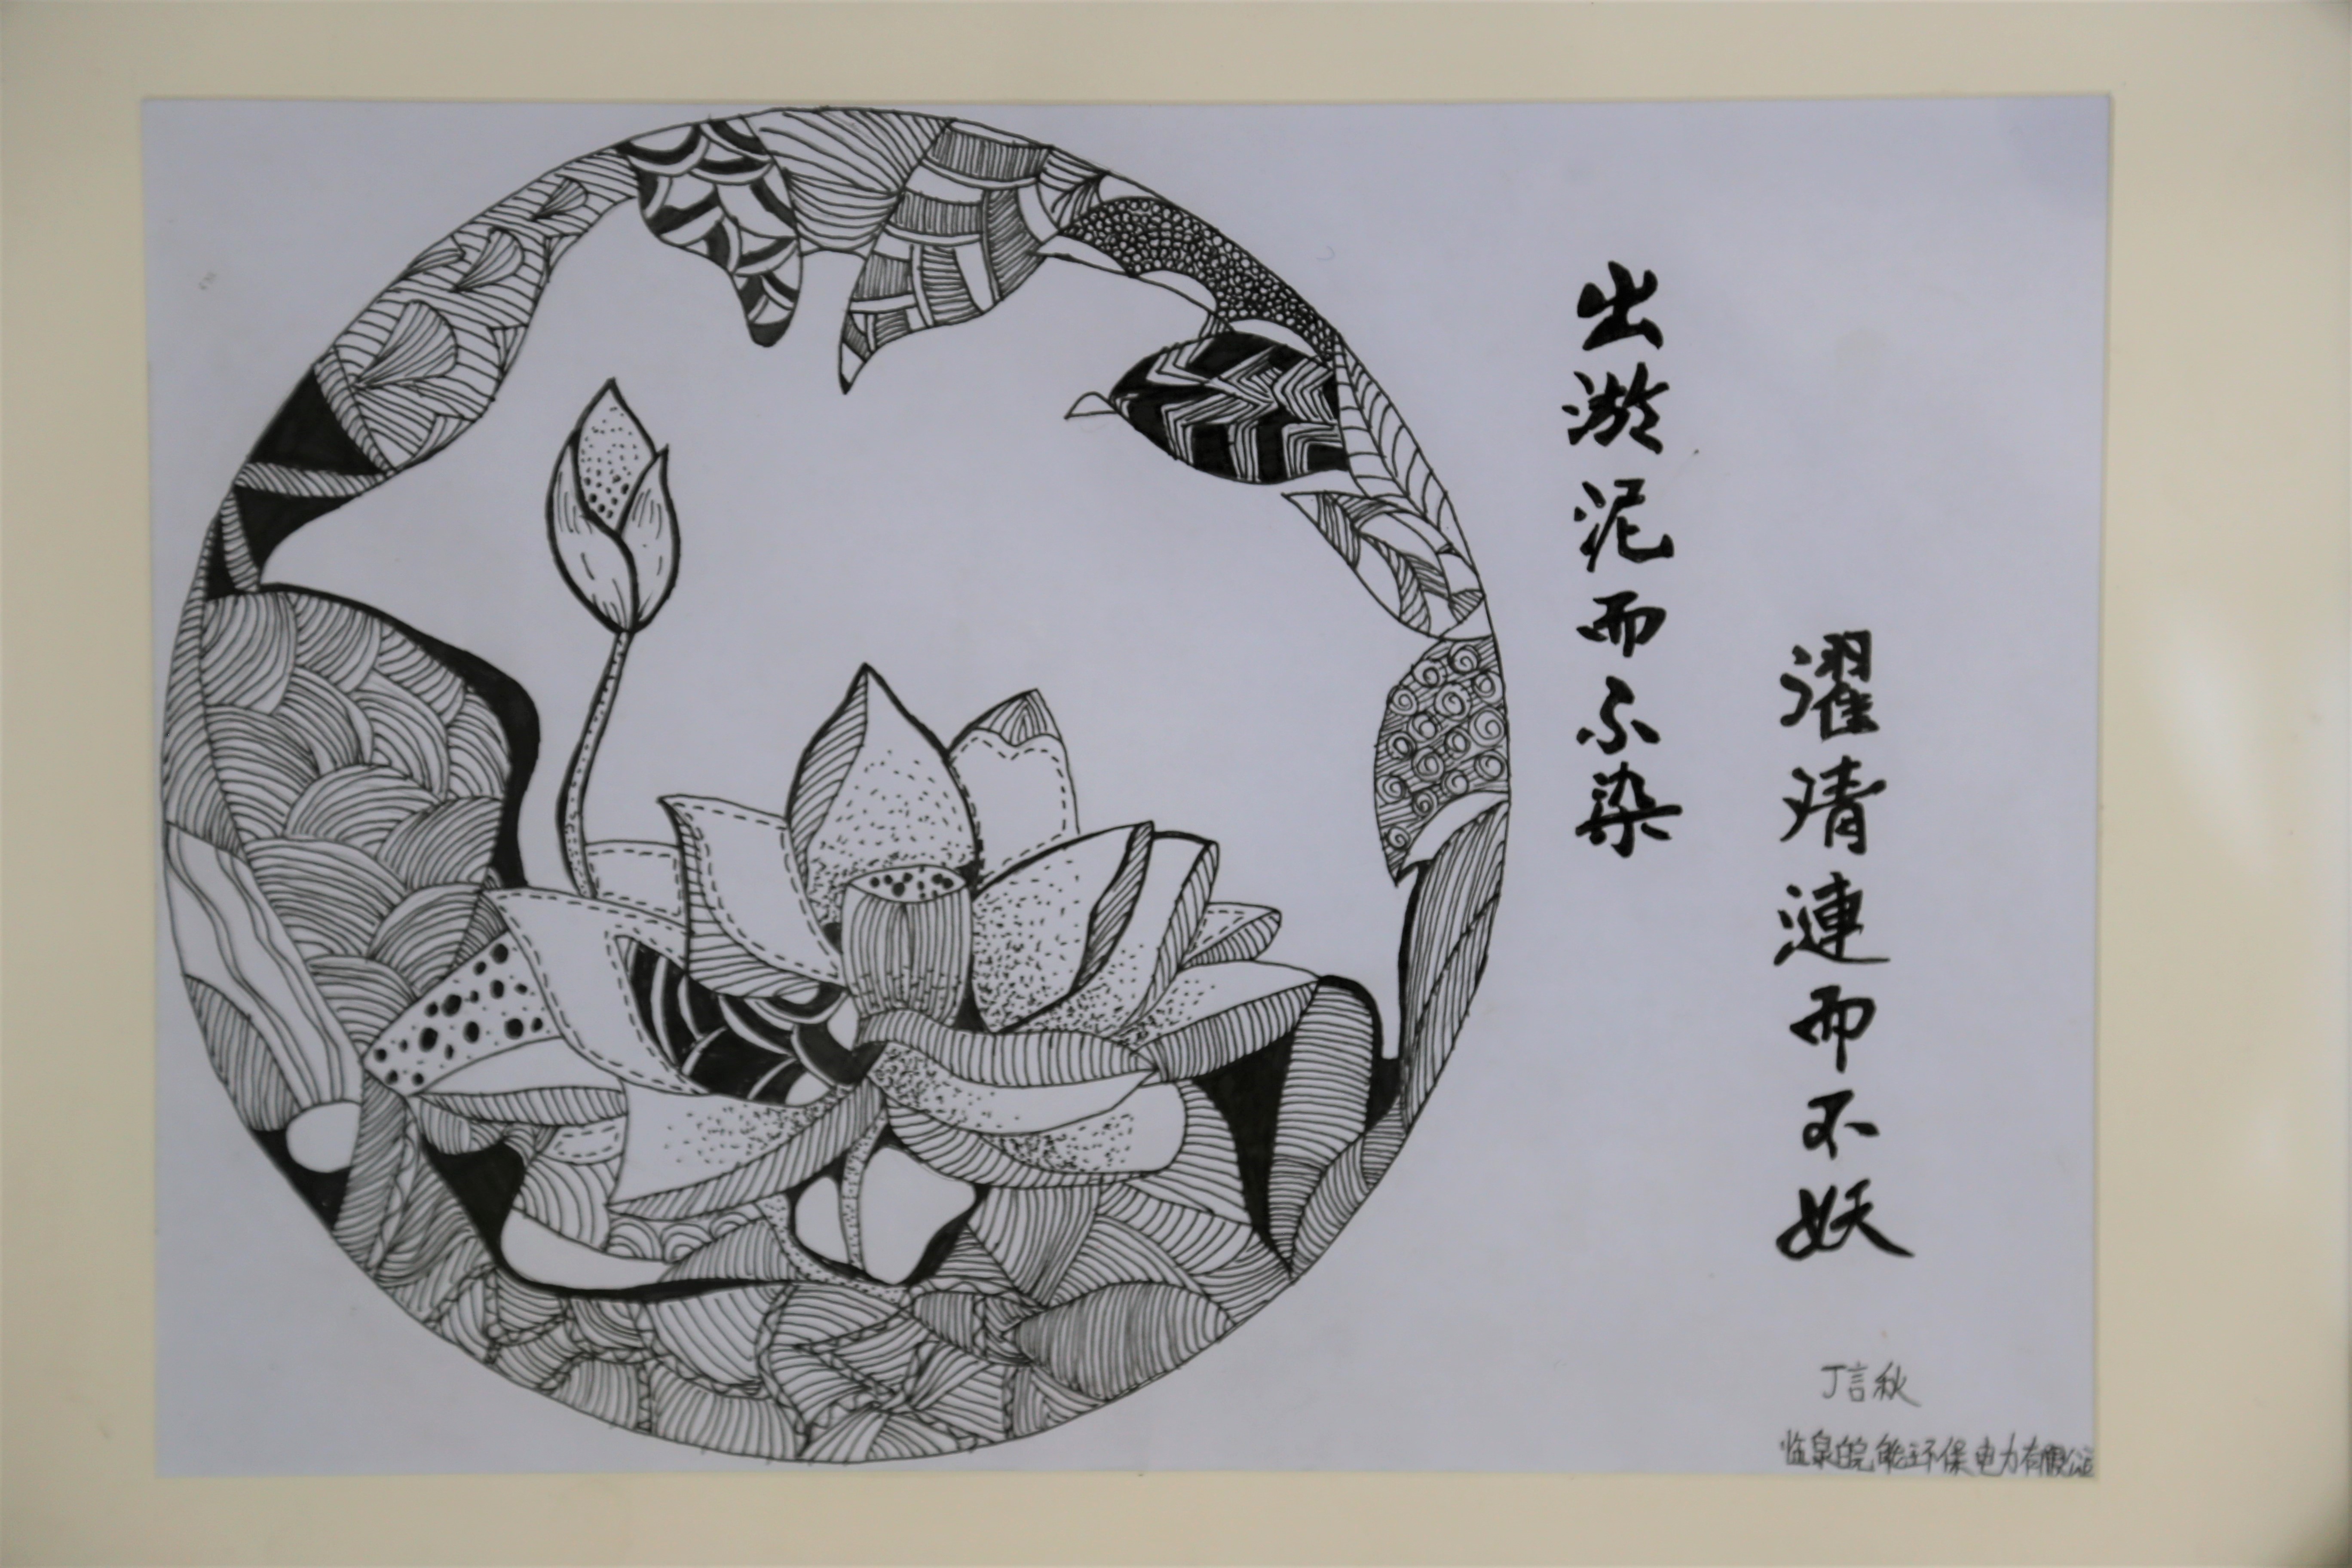 出淤泥而不染
濯清漣而不妖
丁言秋
临泉皖能环保电力有限公司